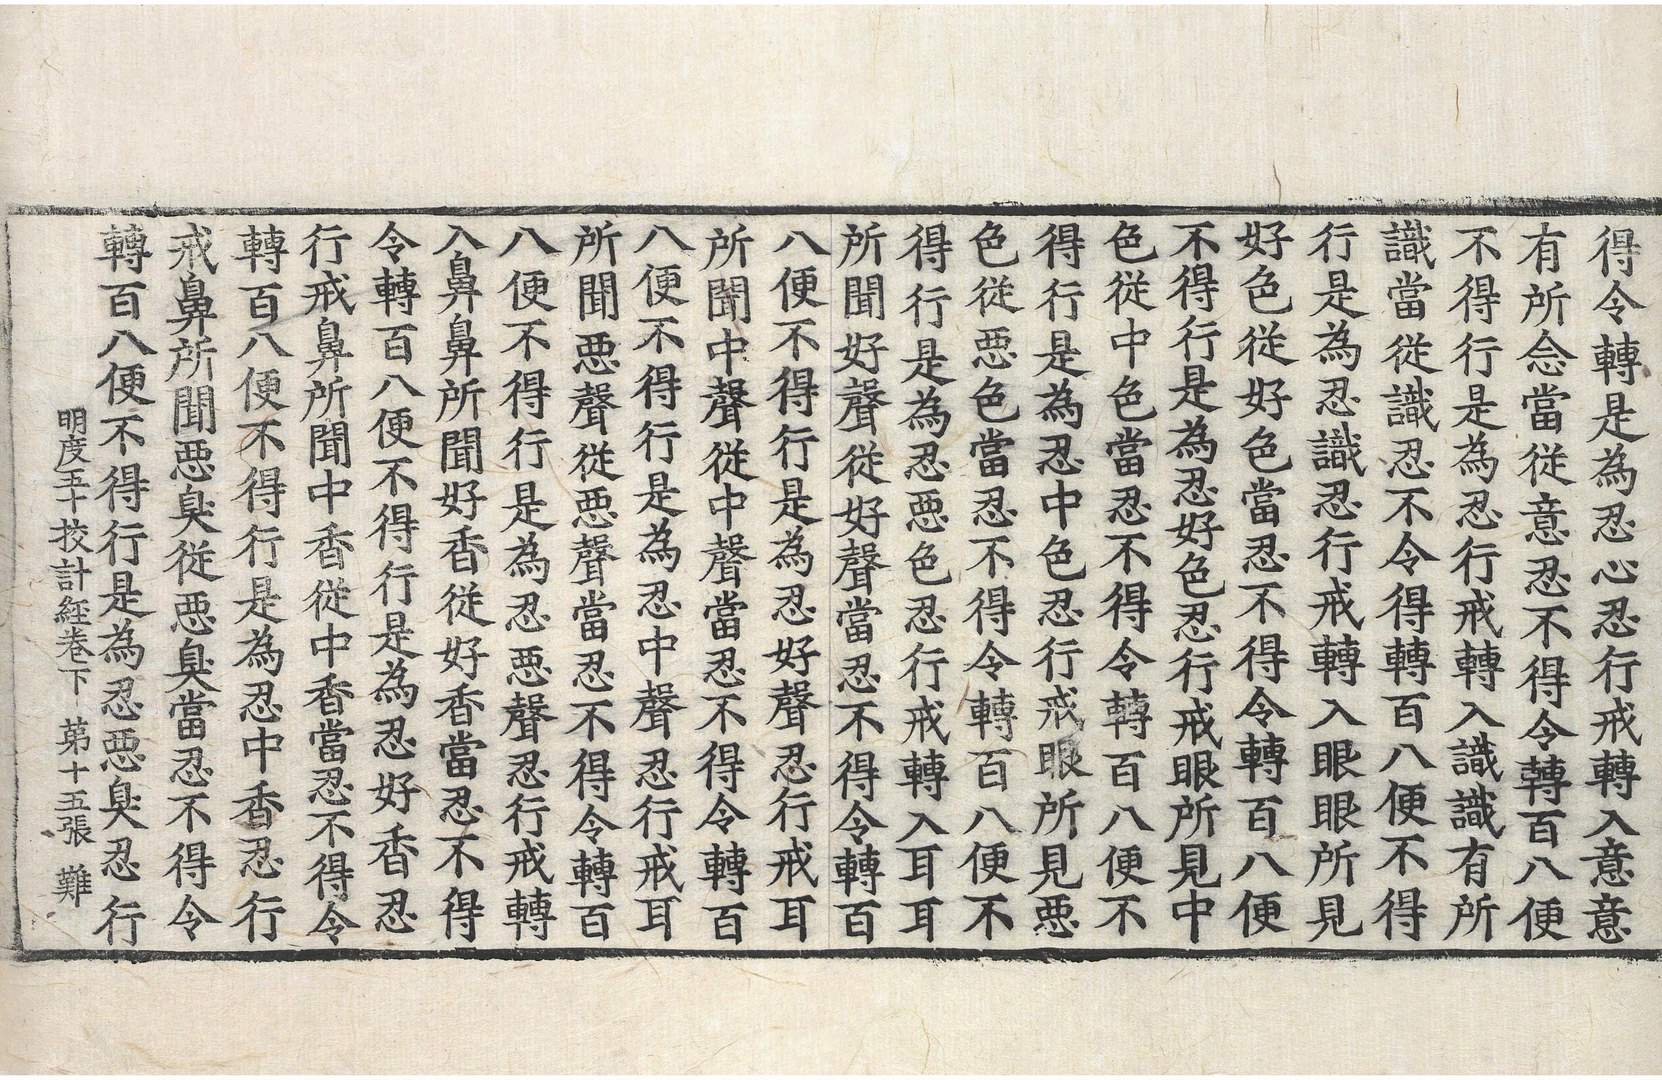 得令轉是為忍心忍行戒轉入意意
有所念當従意忍不得令轉百八便
不得行是為忍行戒轉入識識有所
識當従識忍不令得轉百八便不得
行是為忍識忍行戒轉入眼眼所見
好色従好色當忍不得令轉百八便
不得行是為忍好色忍行戒眼所見中
色従中色當忍不得令轉百八便不
得行是為忍中色忍行戒眼所見惡
色従惡色當忍不得令轉百八便不
得行是為忍惡色忍行戒轉入耳耳
所聞好聲従好聲當忍不得令轉百
八便不得行是為忍好聲忍行戒耳
所聞中聲従中聲當忍不得令轉百
八便不得行是為忍中聲忍行戒耳
所聞惡聲従惡聲當忍不得令轉百
八便不得行是為忍惡聲忍行戒轉
入鼻鼻所聞好香従好香當忍不得
令轉百八便不得行是為忍好香忍
行戒鼻所聞中香従中香當忍不得令
轉百八便不得行是為忍中香忍行
戒鼻所聞惡臭従惡臭當忍不得令
轉百八便不得行是為忍惡臭忍行
明度五十挍計経卷下 第十五張 難